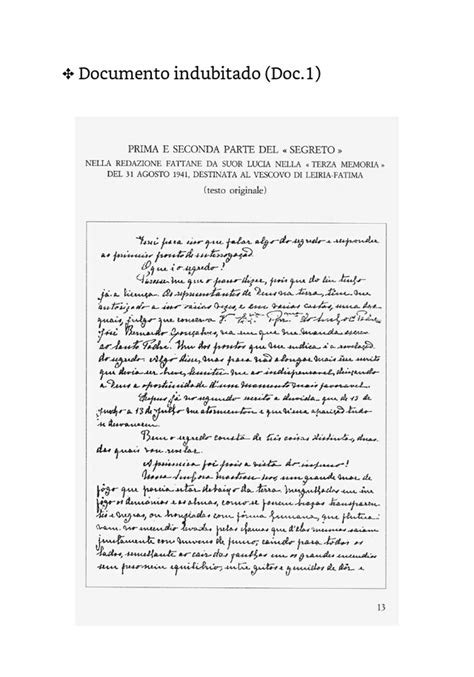 ❖ Documento indubitado (Doc.1)
PRIMA E SECONDA PARTE DEL « SEGRETO »
NELLA REDAZIONE FATTANE DA SUOR LUCIA NELLA « TERZA MEMORIA »
DEL 31 AGOSTO 1941, DESTINATA AL VESCOVO DI LEIRIA-FATIMA
(testo originale)
Terei para isso que falar algo do segredo e responder
ao primeiro ponto de interrogação.
O que é o segredo?
Parece-me que o posso dizer, pois que do Ceu tenho
já a licença. Os representantes de Deus na terra, têm-me
autorizado a isso várias vezes e em várias cartas, uma das
quais, julgo que conserva V. Ex.cia Rev.ma do Senhor P.e
José Bernardo Gonçalves, na em que me manda escrever
ao Santo Padre. Um dos pontos que me indica é a revelação
do segredo. Algo disse, mas para não alongar mais esse escrito
que devia ser breve, limitei-me ao indispensavel, deixando
a Deus a oportunidade d'um momento mais favoravel.
Expus já no segundo escrito a duvida que de 13 de
junho a 13 de julho me atormentou e que n'essa aparição tudo
se desvaneceu.
Bem o segredo consta de três coisas distintas, duas
das quais vou revelar.
A primeira foi pois a vista do inferno!
Nossa Senhora mostrou-nos um grande mar de
fôgo que parecia estar debaixo da terra. Mergulhados em êsse
fôgo os demónios e as almas, como se fossem brazas transparen-
tes e negras, ou bronziadas com fórma humana, que flutua-
vam no incendio levadas pelas chamas que d'elas mesmas saiam
juntamente com nuvens de fumo, caindo para todos os
lados, semelhante ao cair das faulhas em os grandes incendios
sem peso nem equilibrio, entre gritos e gemidos de dôr e
13